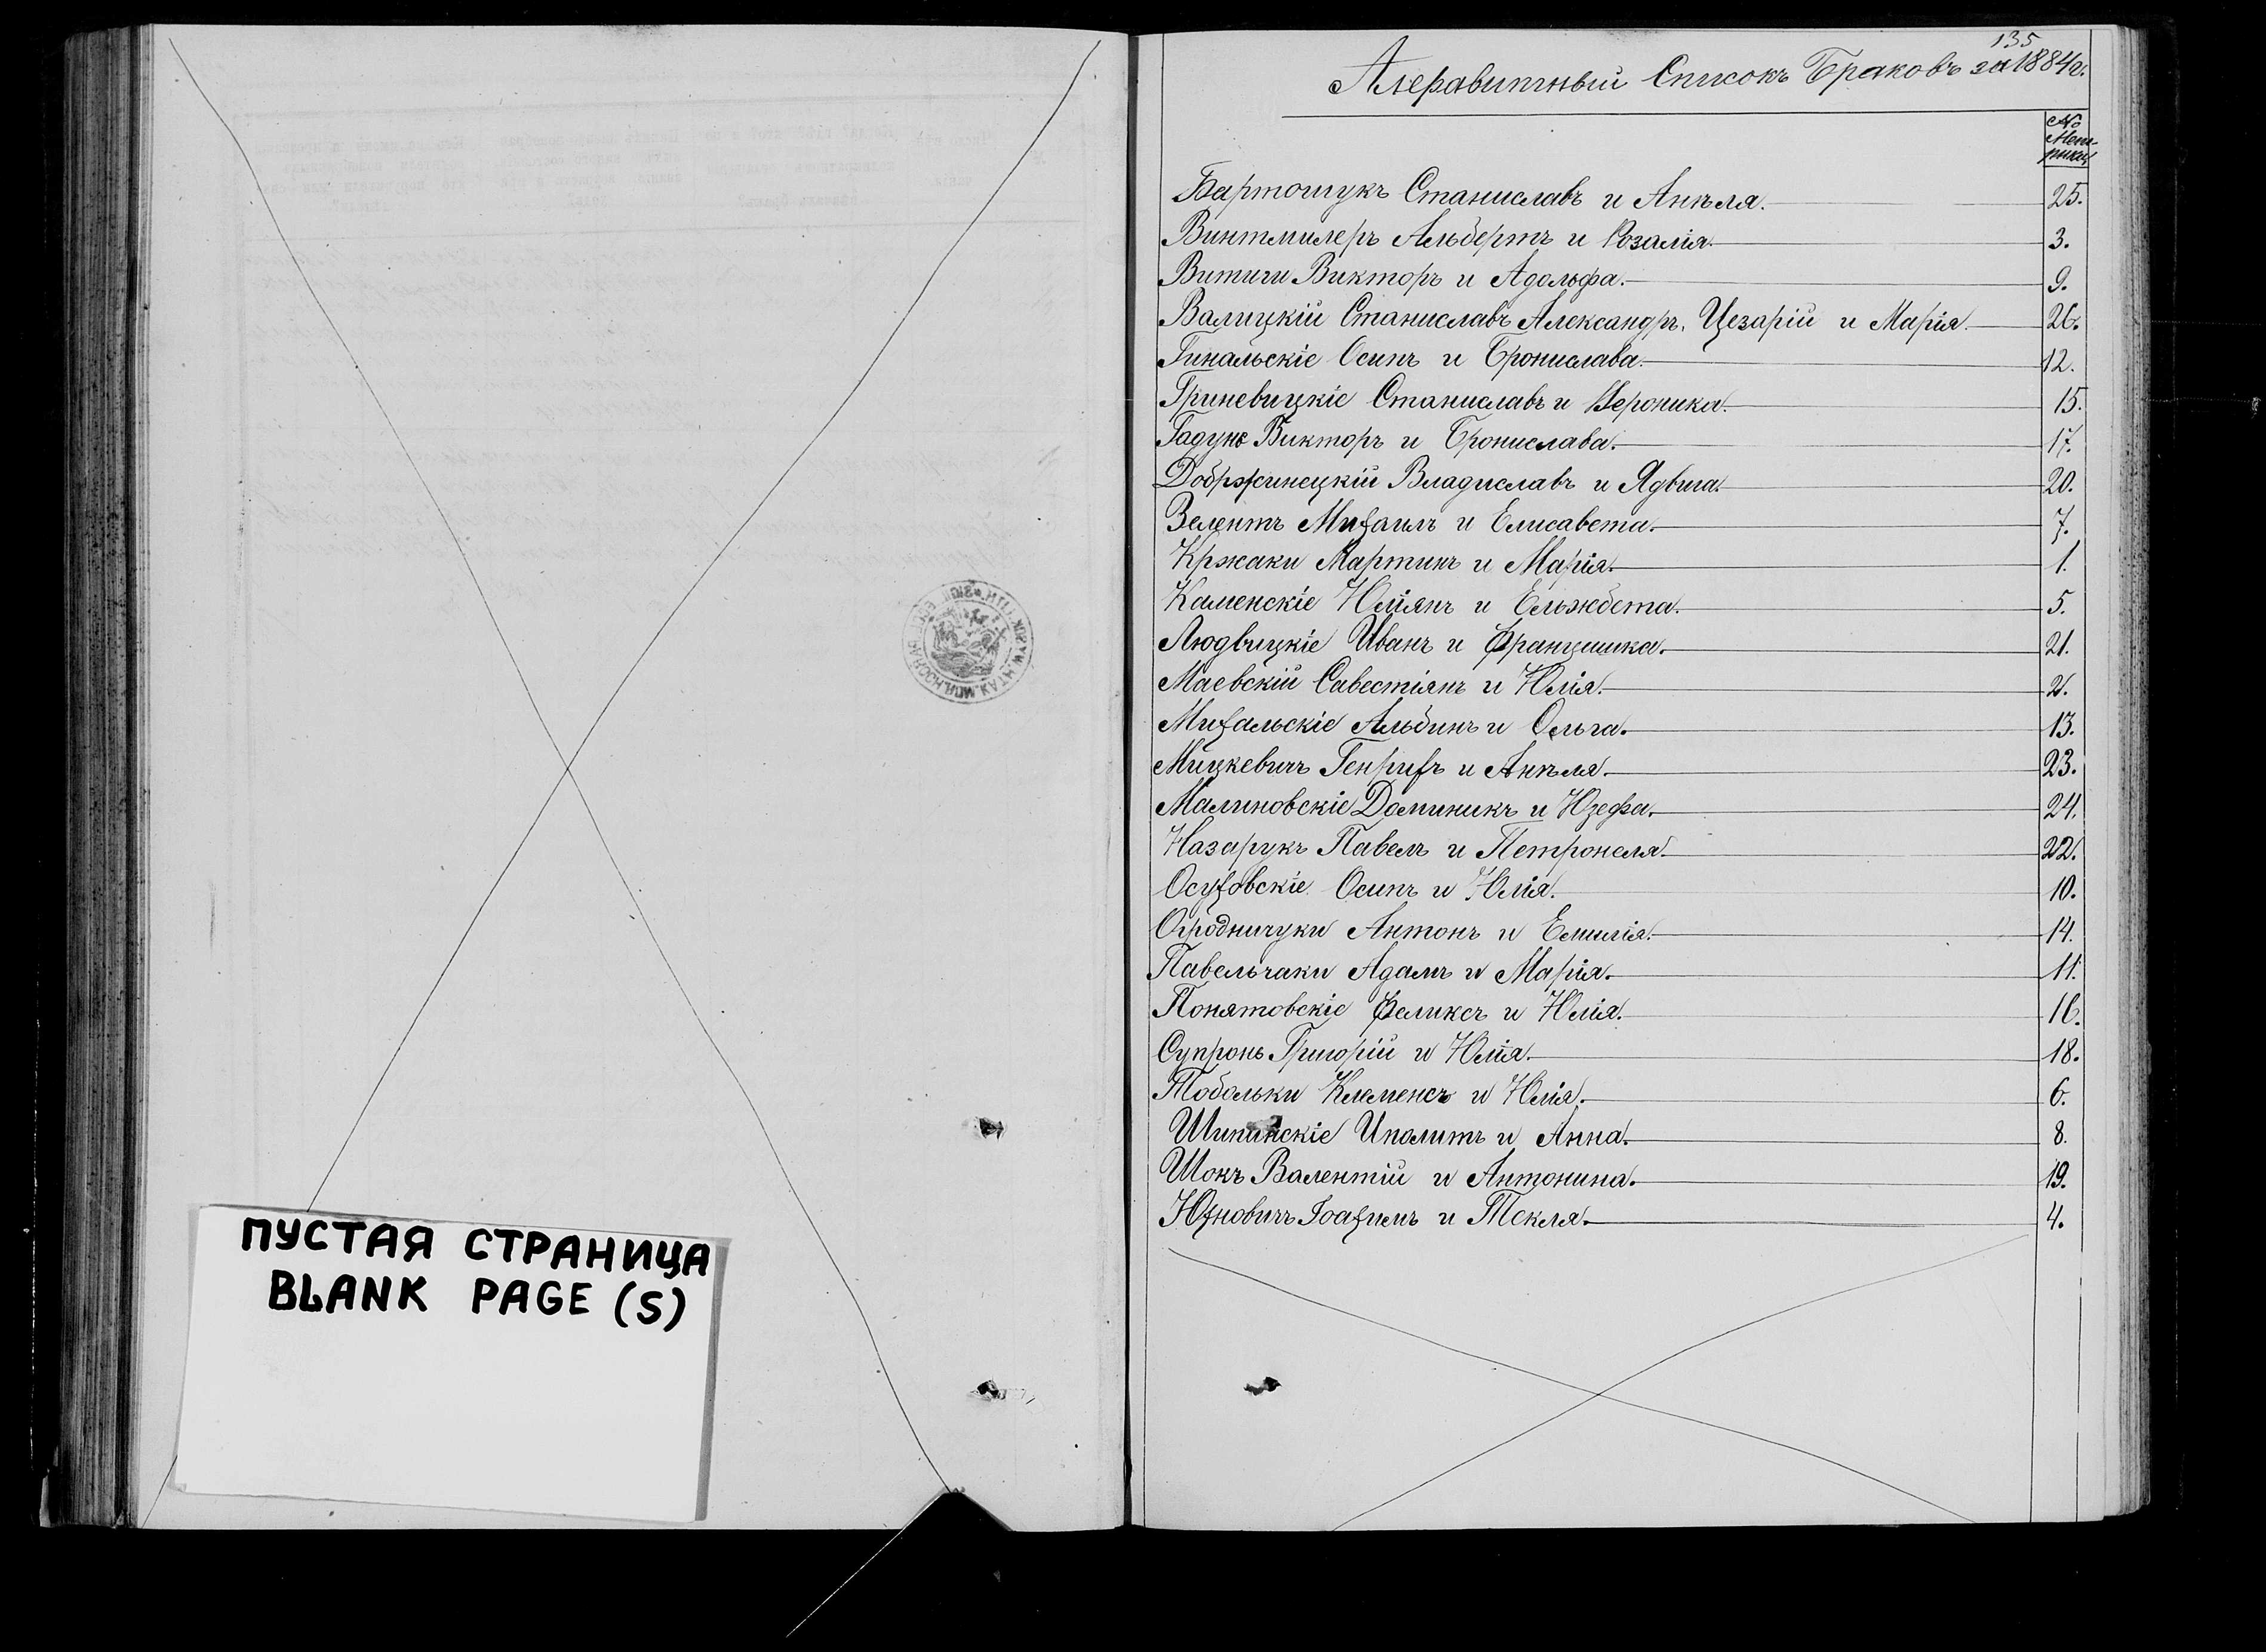 ПУСТАЯ СТРАНИЦА
BLANK PAGE (S)
135
Алфавитный Списокъ Браковъ за 1884 г.
№ Мет-
рики
Бартошукъ Станиславъ и Анѣля. 25.
Винтмилеръ Альбертъ и Розалія. 3.
Витиги Викторъ и Адольфа. 9.
Валицкій Станиславъ Александръ, Цезарій и Марія. 26.
Гинальскіе Осипъ и Бронислава. 12.
Гриневицкіе Станиславъ и Вероника. 15.
Гадунъ Викторъ и Бронислава. 17.
Добржинецкій Владиславъ и Ядвига. 20.
Зелентъ Михаилъ и Елисавета. 7.
Кржаки Мартинъ и Марія. 1.
Каменскіе Юліянъ и Ельжбета. 5.
Людвицкіе Иванъ и Францишка. 21.
Маевскій Савестіянъ и Юлія. 2.
Михальскіе Альбинъ и Ольга. 13.
Мицкевичъ Генрихъ и Анѣля. 23.
Малиновскіе Доминикъ и Юзефа. 24.
Назарукъ Павелъ и Петронеля. 22.
Осуховскіе Осипъ и Юлія. 10.
Огродничуки Антонъ и Емилія. 14.
Павельчаки Адамъ и Марія. 11.
Понятовскіе Феликсъ и Юлія. 16.
Супронъ Григорій и Юлія. 18.
Тобольки Клеменсъ и Юлія. 6.
Шипинскіе Иполитъ и Анна. 8.
Шокъ Валентій и Антонина. 19.
Юхновичъ Іоахимъ и Текля. 4.